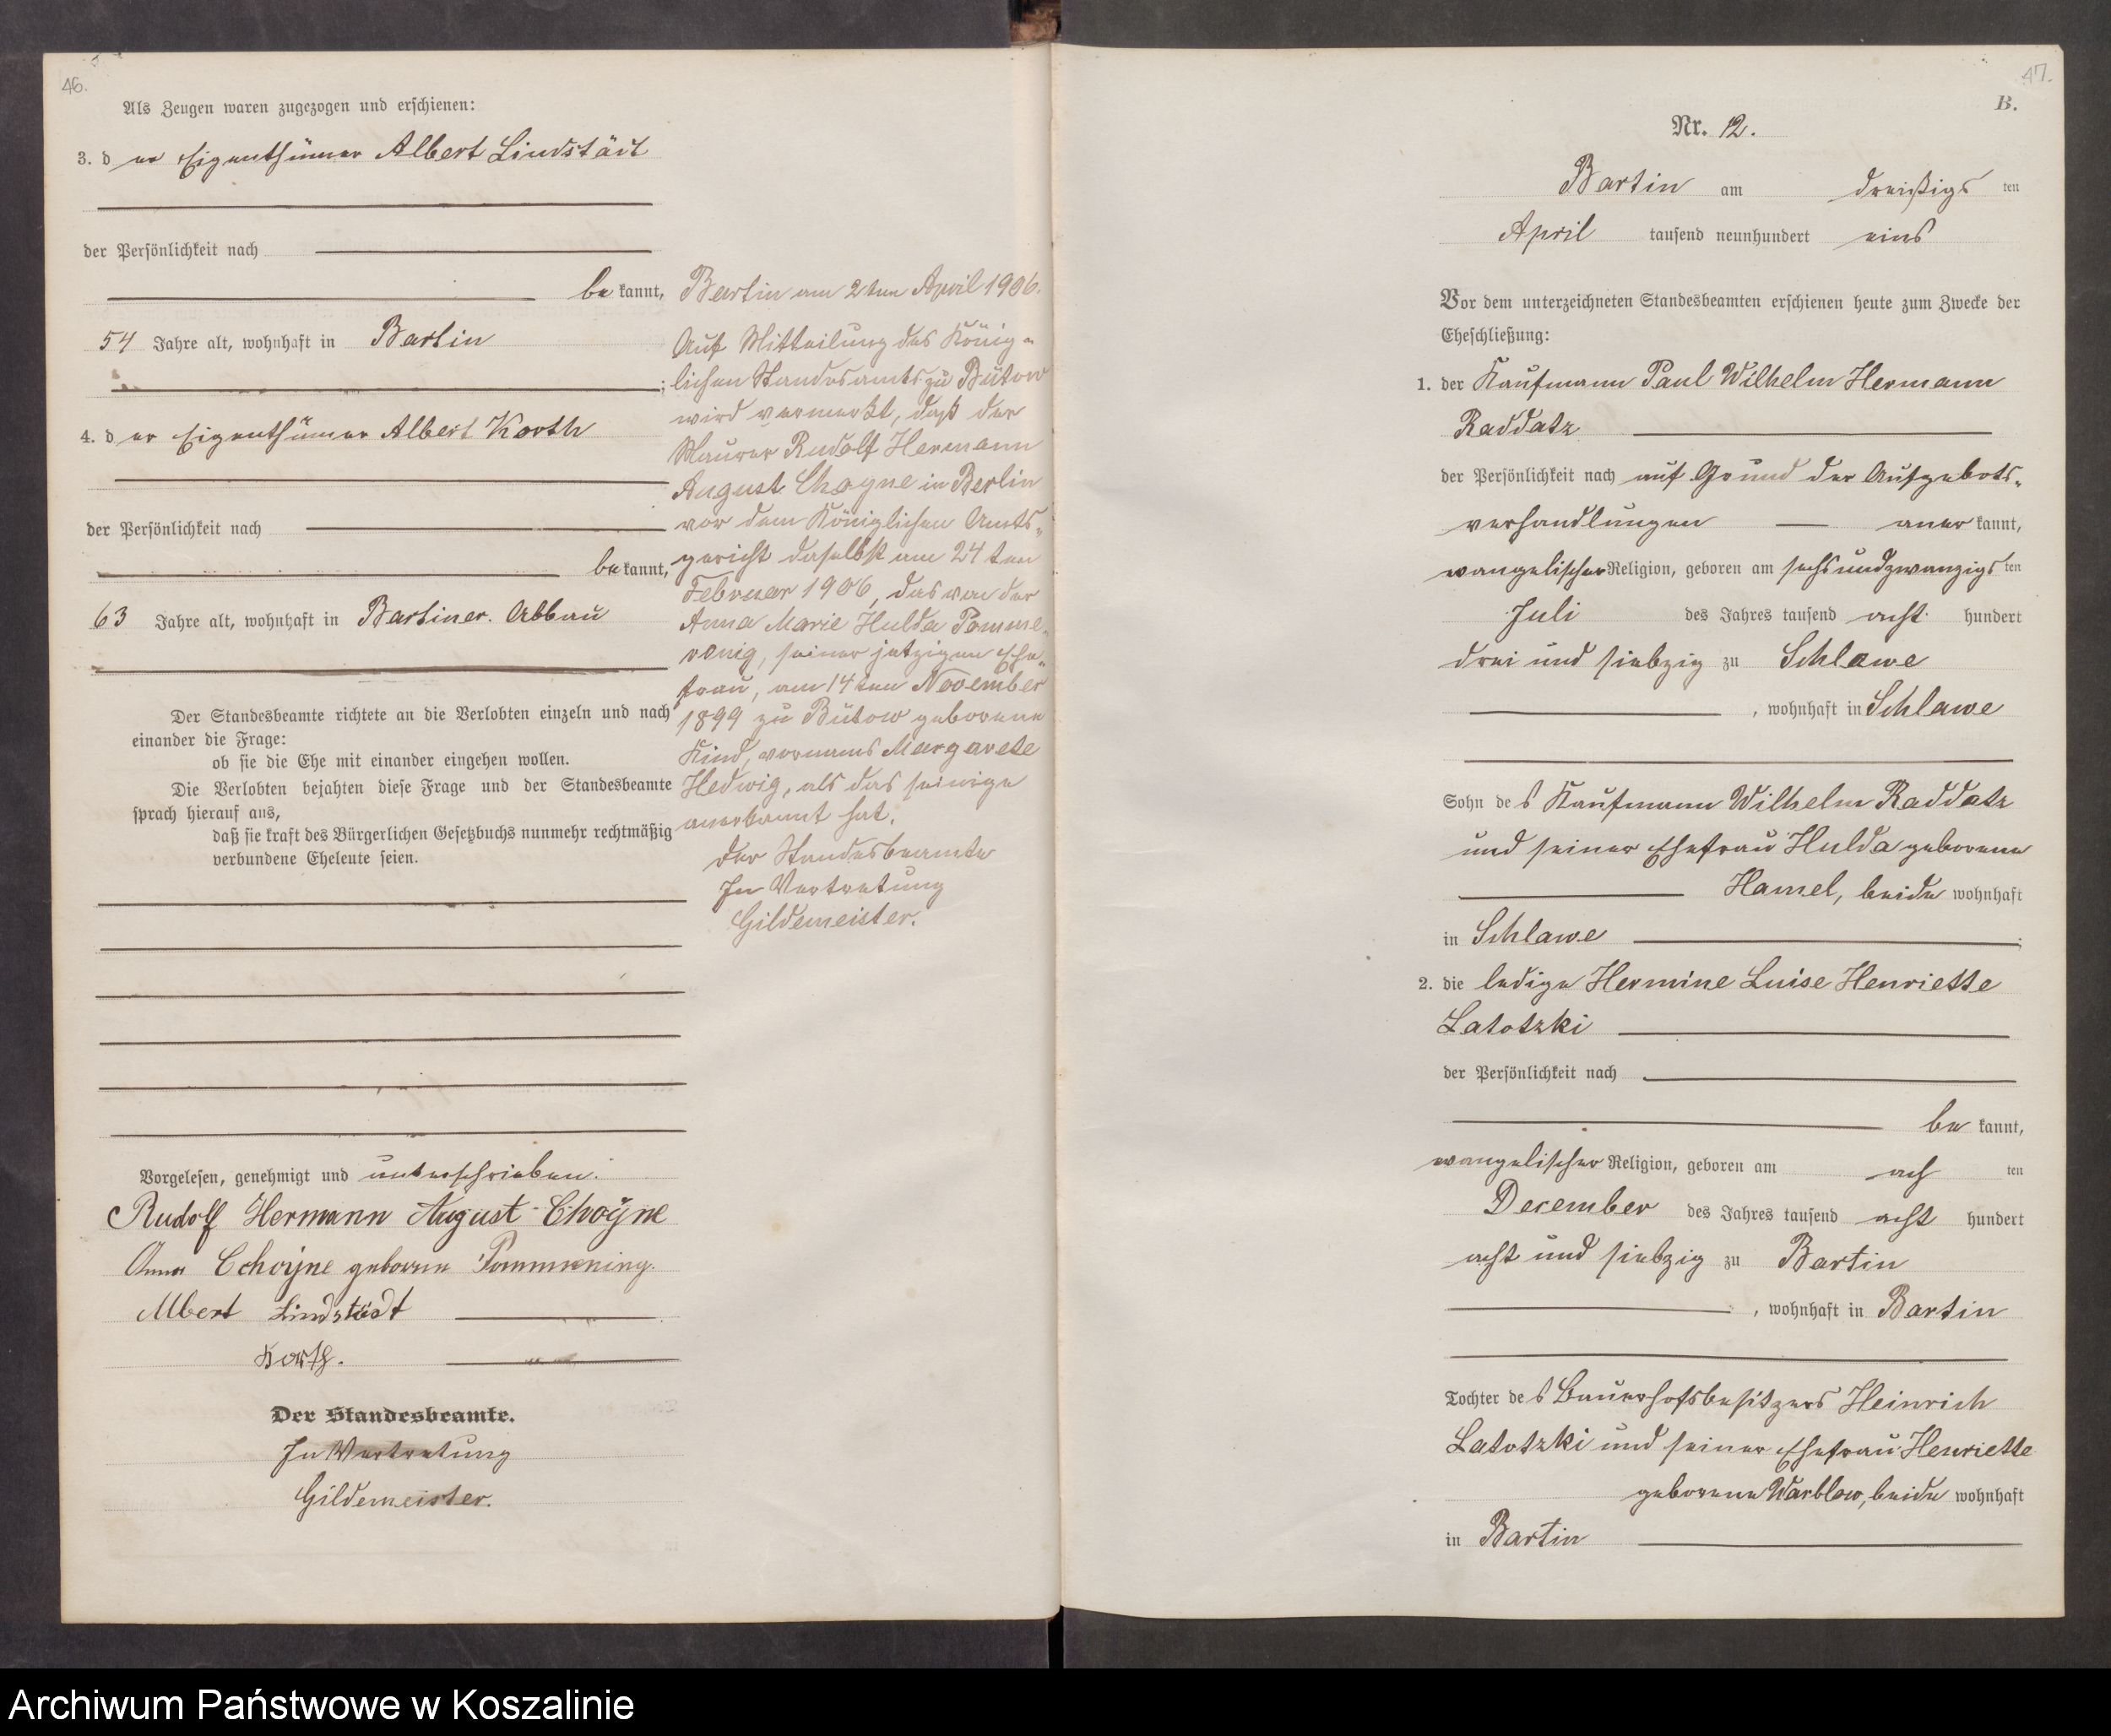 46.
Als Zeugen waren zugezogen und erschienen:
3. der Eigenthümer Albert Lindstädt
der Persönlichkeit nach
bekannt,
54 Jahre alt, wohnhaft in Bartin
;
4. der Eigenthümer Albert Korth
der Persönlichkeit nach
bekannt,
63 Jahre alt, wohnhaft in Bartiner Abbau
Der Standesbeamte richtete an die Verlobten einzeln und nach
einander die Frage:
ob sie die Ehe mit einander eingehen wollen.
Die Verlobten bejahten diese Frage und der Standesbeamte
sprach hierauf aus,
daß sie kraft des Bürgerlichen Gesetzbuchs nunmehr rechtmäßig
verbundene Eheleute seien.
Vorgelesen, genehmigt und unterschrieben.
Rudolf Hermann August Choyne
Anna Choyne geborene Pommrening.
Albert Lindstädt
Korth.
Der Standesbeamte.
In Vertretung
Gildemeister.
Bartin am 2ten April 1906.
Auf Mitteilung des König-
lichen Standesamts zu Bütow
wird vermerkt, daß der
Maurer Rudolf Hermann
August Choyne in Berlin
vor dem Königlichen Amts-
gericht daselbst am 24ten
Februar 1906, das von der
Anna Marie Hulda Pomme-
renig, seiner jetzigen Ehe-
frau, am 14ten November
1899 zu Bütow geborene
Kind, vornamens Margarete
Hedwig, als das seinige
anerkannt hat.
Der Standesbeamte
In Vertretung
Gildemeister.
47.
B.
Nr. 12.
Bartin am dreißigsten
April tausend neunhundert eins
Vor dem unterzeichneten Standesbeamten erschienen heute zum Zwecke der
Eheschließung:
1. der Kaufmann Paul Wilhelm Hermann
Raddatz
der Persönlichkeit nach auf Grund der Aufgebots-
verhandlungen anerkannt,
evangelischer Religion, geboren am sechsundzwanzigsten
Juli des Jahres tausend acht hundert
drei und siebzig zu Schlawe
, wohnhaft in Schlawe
Sohn des Kaufmann Wilhelm Raddatz
und seiner Ehefrau Hulda geborene
Hamel, beide wohnhaft
in Schlawe ;
2. die ledige Hermine Luise Henriette
Latotzki
der Persönlichkeit nach
bekannt,
evangelischer Religion, geboren am achten
December des Jahres tausend acht hundert
acht und siebzig zu Bartin
, wohnhaft in Bartin
Tochter des Bauerhofsbesitzers Heinrich
Latotzki und seiner Ehefrau Henriette
geborene Warblow, beide wohnhaft
in Bartin